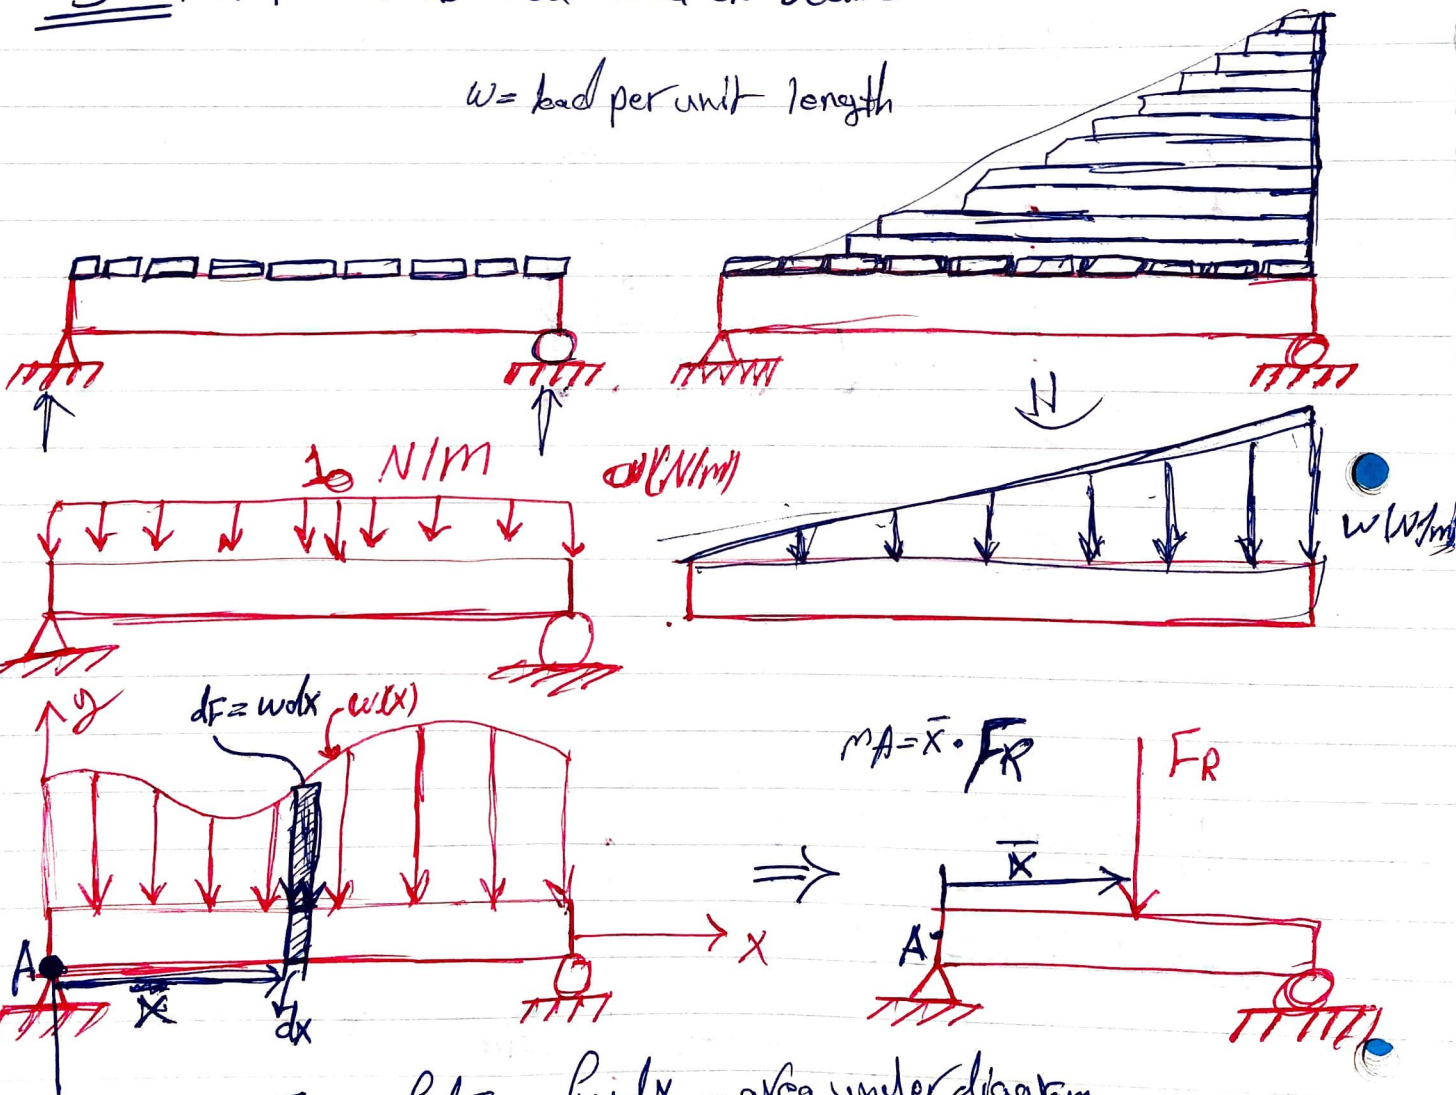 on beam
w = load per unit length
10 N/m
(N/m)
w (N/m)
y
dF = wdx
w(x)
MA = x̄ · FR
FR
x̄
x
A
A
x
dx
∫dF = ∫wdx = area under diagram